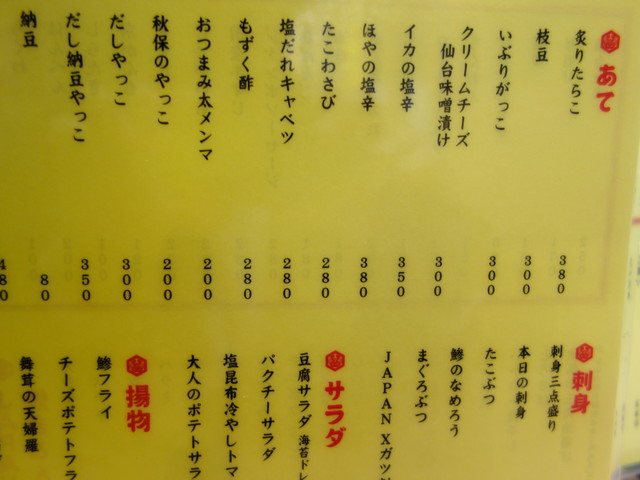 あて
炙りたらこ 380
枝豆 300
いぶりがっこ 300
クリームチーズ
仙台味噌漬け 300
イカの塩辛 350
ほやの塩辛 380
たこわさび 280
塩だれキャベツ 280
もずく酢 280
おつまみ太メンマ 200
秋保のやっこ 200
だしやっこ 300
だし納豆やっこ 350
納豆 80
480
刺身
刺身三点盛り
本日の刺身
たこぶつ
鯵のなめろう
まぐろぶつ
JAPAN Xガツ
サラダ
豆腐サラダ 海苔ドレ
パクチーサラダ
塩昆布冷やしトマ
大人のポテトサラ
揚物
鯵フライ
チーズポテトフラ
舞茸の天婦羅